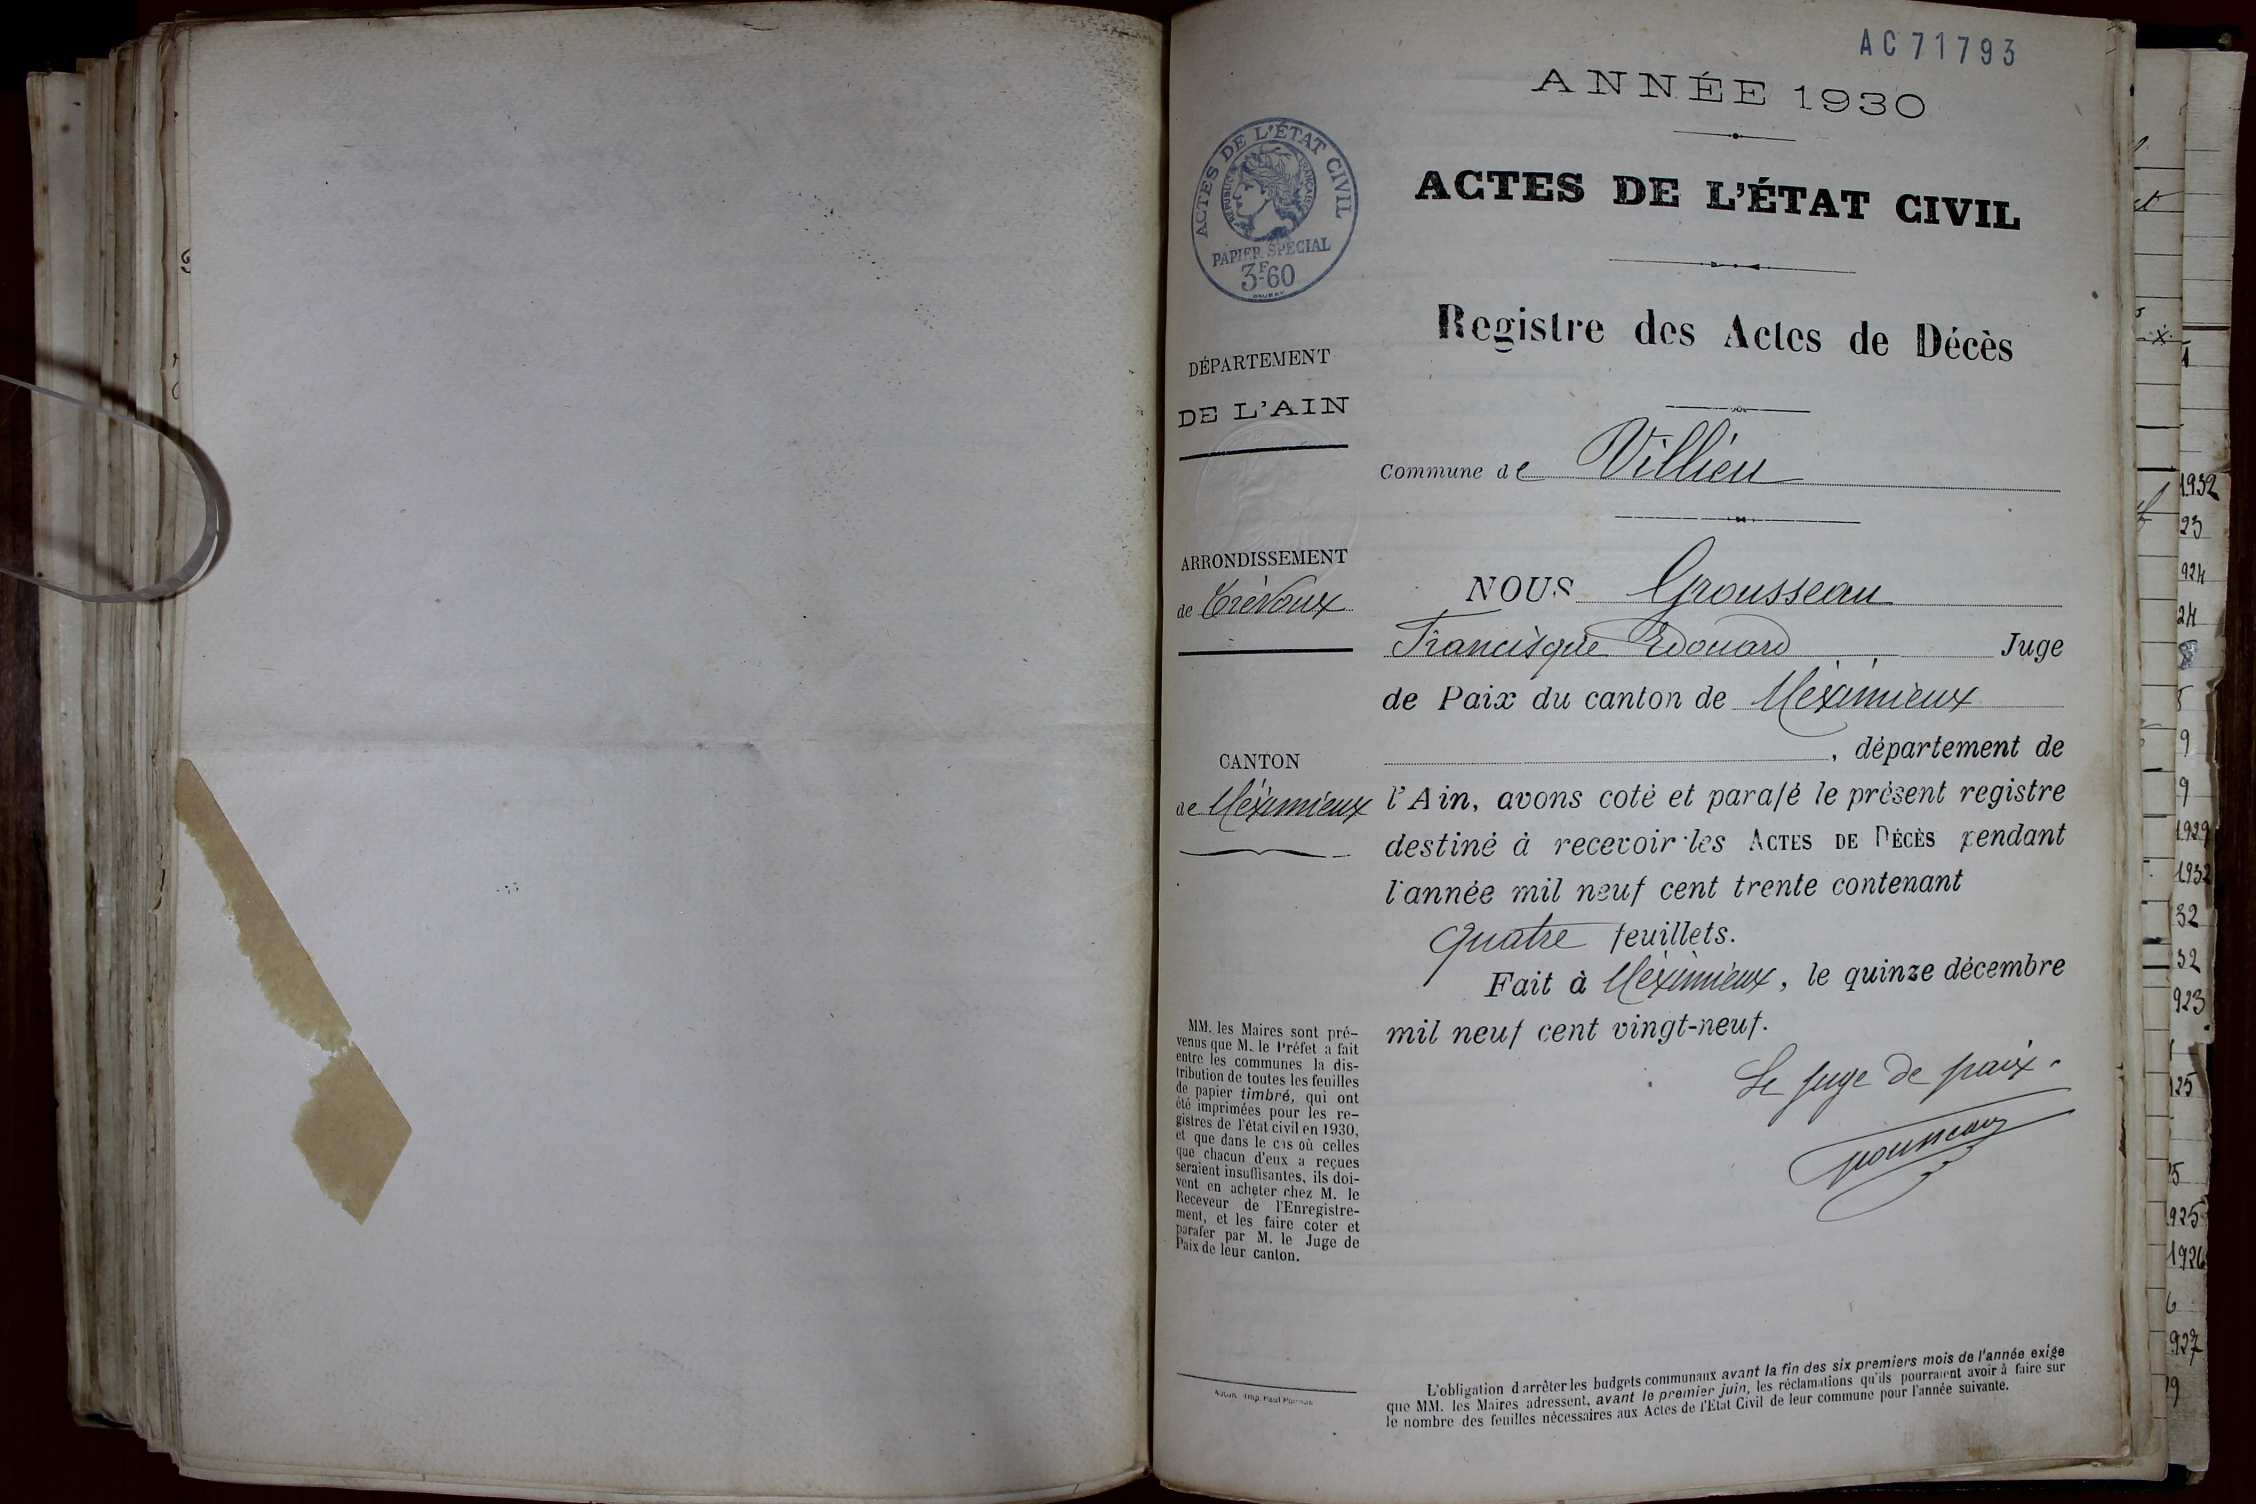 AC71793
ANNÉE 1930
ACTES DE L'ÉTAT CIVIL
RÉPUBLIQUE FRANÇAISE
PAPIER SPÉCIAL
3F60
ACTES DE L'ÉTAT CIVIL
Registre des Actes de Décès
DÉPARTEMENT
DE L'AIN
Commune de Villieu
ARRONDISSEMENT
de Trévoux
NOUS Grousseau
Francisque Edouard Juge
de Paix du canton de Méximieux
, département de
CANTON
de Méximieux
l'Ain, avons coté et parafé le présent registre
destiné à recevoir les ACTES DE DÉCÈS pendant
l'année mil neuf cent trente contenant
quatre feuillets.
Fait à Méximieux, le quinze décembre
mil neuf cent vingt-neuf.
Le juge de paix.
Grousseau
MM. les Maires sont pré-
venus que M. le Préfet a fait
entre les communes la dis-
tribution de toutes les feuilles
de papier timbré, qui ont
été imprimées pour les re-
gistres de l'état civil en 1930,
et que dans le cas où celles
que chacun d'eux a reçues
seraient insuffisantes, ils doi-
vent en acheter chez M. le
Receveur de l'Enregistre-
ment, et les faire coter et
parafer par M. le Juge de
Paix de leur canton.
L'obligation d'arrêter les budgets communaux avant la fin des six premiers mois de l'année exige
que MM. les Maires adressent, avant le premier juin, les réclamations qu'ils pourraient avoir à faire sur
le nombre des feuilles nécessaires aux Actes de l'Etat Civil de leur commune pour l'année suivante.
1932
23
924
24
9
9
1929
1932
32
32
923
25
925
1926
927